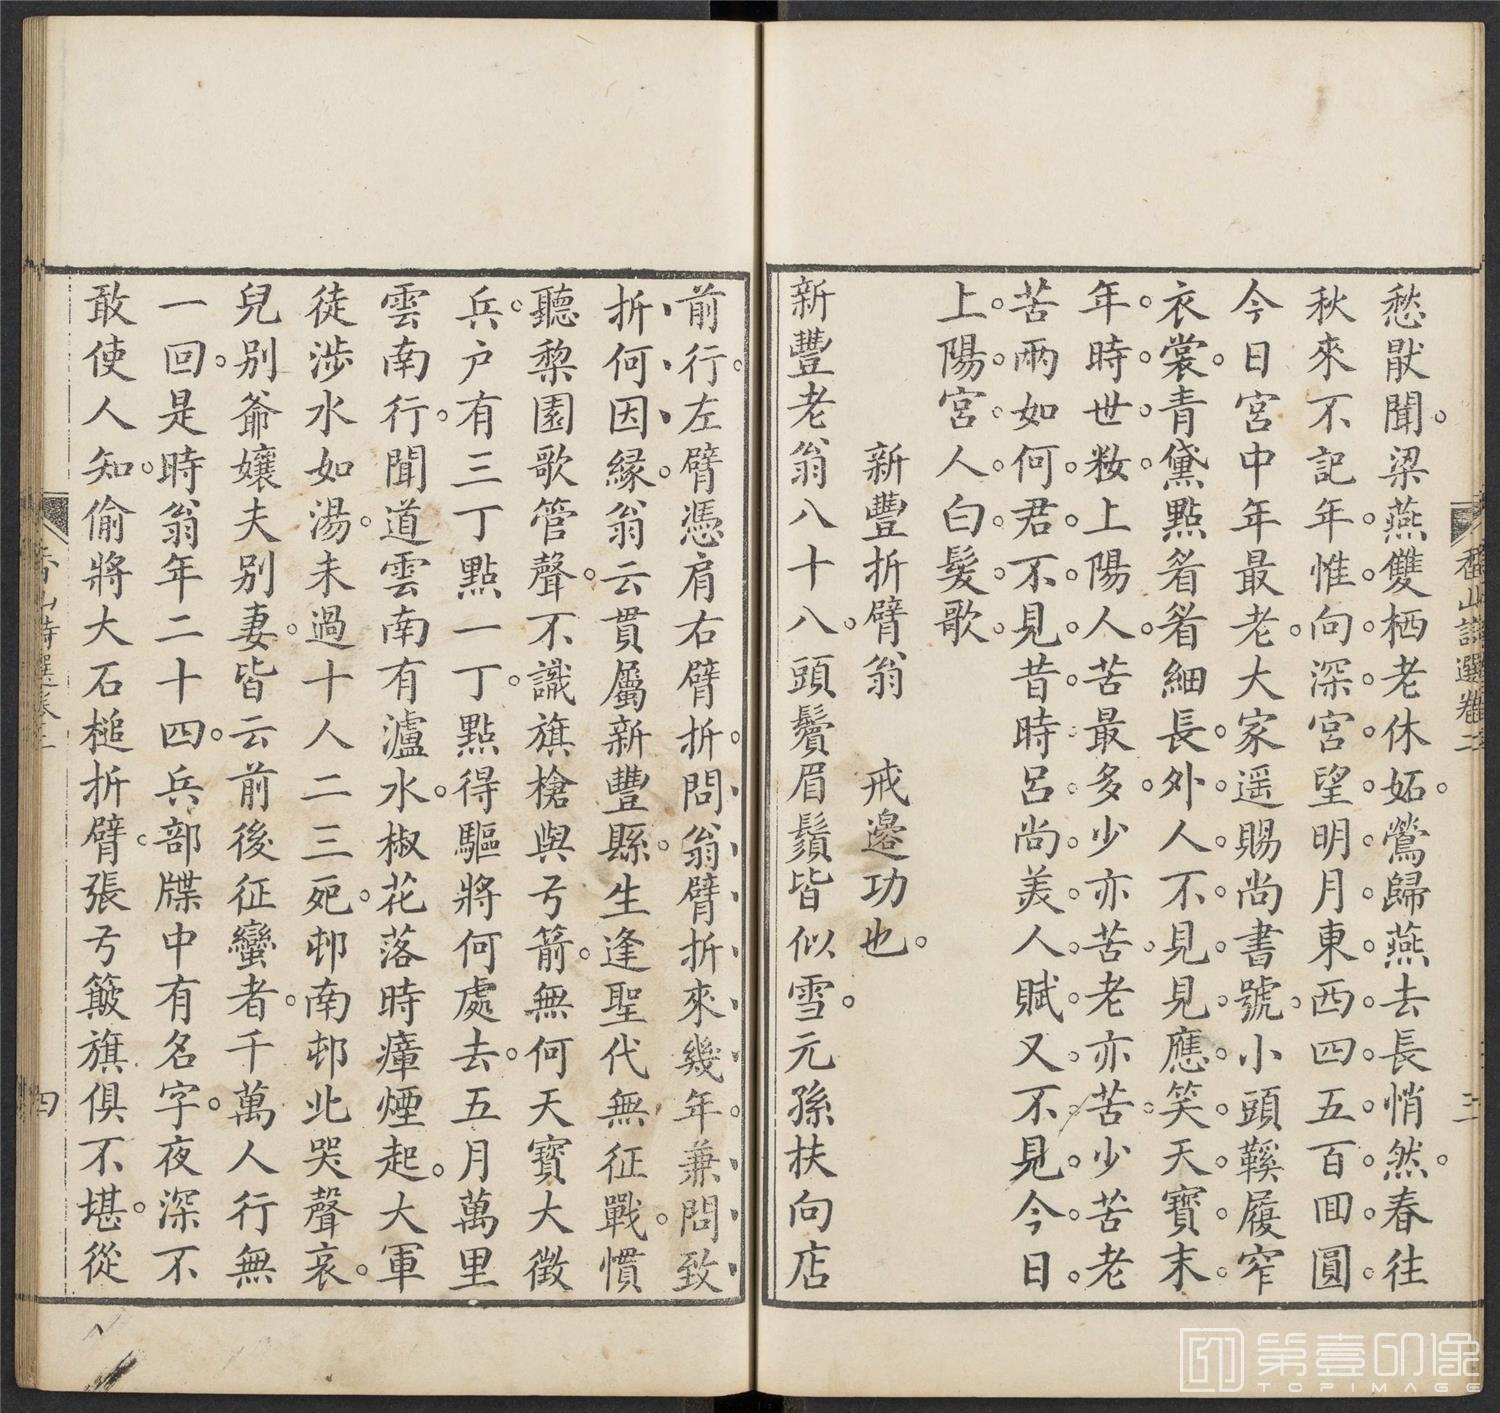 愁猒聞。梁燕雙栖老休妬。鶯歸燕去長悄然。春往
秋來不記年。惟向深宮望明月。東西四五百回圓。
今日宮中年最老。大家遥賜尚書號。小頭鞵履窄
衣裳。青黛點着着細長。外人不見見應笑。天寶末
年時世粧。上陽人。苦最多。少亦苦。老亦苦。少苦老
苦兩如何。君不見昔時呂尚美人賦。又不見今日
上陽宮人白髮歌。
新豐折臂翁　戒邊功也。
新豐老翁八十八。頭鬢眉鬚皆似雪。元孫扶向店
前行。左臂憑肩右臂折。問翁臂折來幾年。兼問致
折何因緣。翁云貫屬新豐縣。生逢聖代無征戰。慣
聽棃園歌管聲。不識旗槍與弓箭。無何天寶大徵
兵。户有三丁點一丁。點得驅將何處去。五月萬里
雲南行。聞道雲南有瀘水。椒花落時瘴煙起。大軍
徒涉水如湯。未過十人二三死。邨南邨北哭聲哀。
兒別爺孃夫別妻。皆云前後征蠻者。千萬人行無
一回。是時翁年二十四。兵部牒中有名字。夜深不
敢使人知。偷將大石槌折臂。張弓簸旗俱不堪。從
香山詩選卷二
三
香山詩選卷二
四
第壹印像
TOPIMAGE